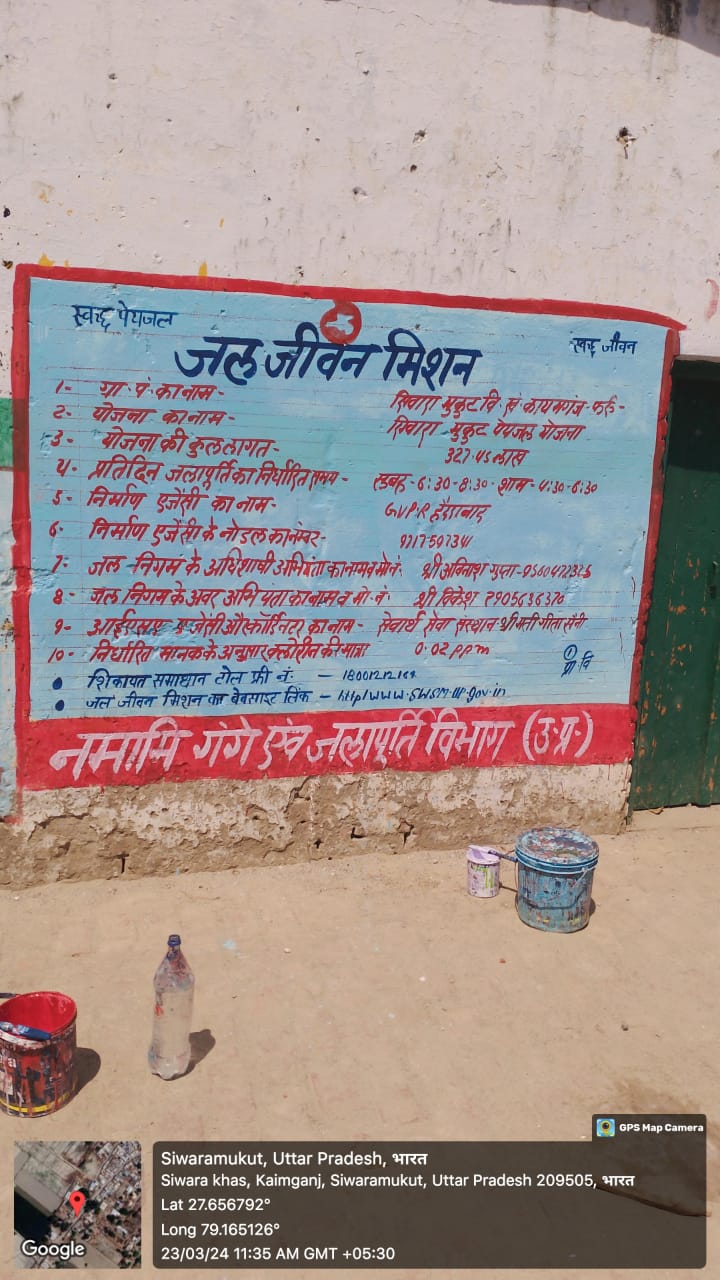 स्वच्छ पेयजल
स्वच्छ जीवन
जल जीवन मिशन
1- ग्रा. पं. का नाम- सिवारा मुकुट वि. सं. कायमगंज-फर्रु-
2- योजना का नाम- सिवारा मुकुट पेयजल योजना
3- योजना की कुल लागत- 327.45 लाख
4- प्रतिदिन जलापूर्ति का निर्धारित समय- 6:30-8:30- शाम- 4:30-6:30
5- निर्माण एजेंसी का नाम- GVPR हैदराबाद
6- निर्माण एजेंसी के नोडल का नम्बर-
7- जल-निगम के अधिशाषी अभियंता का नाम व मो.नं. श्री अविनाश गुप्ता-
8- जल निगम के अवर अभियंता का नाम व मो.नं. श्री विकेश 7905636370
9- एजेंसी का नाम- सेवार्थ सेवा संस्थान श्रीमती गीता सैनी
10- निर्धारित मानक के अनुसार क्लोरीन की मात्रा 0.02 PPm
① प्रा.वि
• शिकायत समाधान टोल फ्री नं. -
• जल जीवन मिशन का वेबसाइट लिंक - http/www.swsm.up.gov.in
नमामि गंगे एवं जलापूर्ति विभाग (उ.प्र.)
GPS Map Camera
Siwaramukut, Uttar Pradesh, भारत
Siwara khas, Kaimganj, Siwaramukut, Uttar Pradesh 209505, भारत
Lat 27.656792°
Long 79.165126°
23/03/24 11:35 AM GMT +05:30
Google